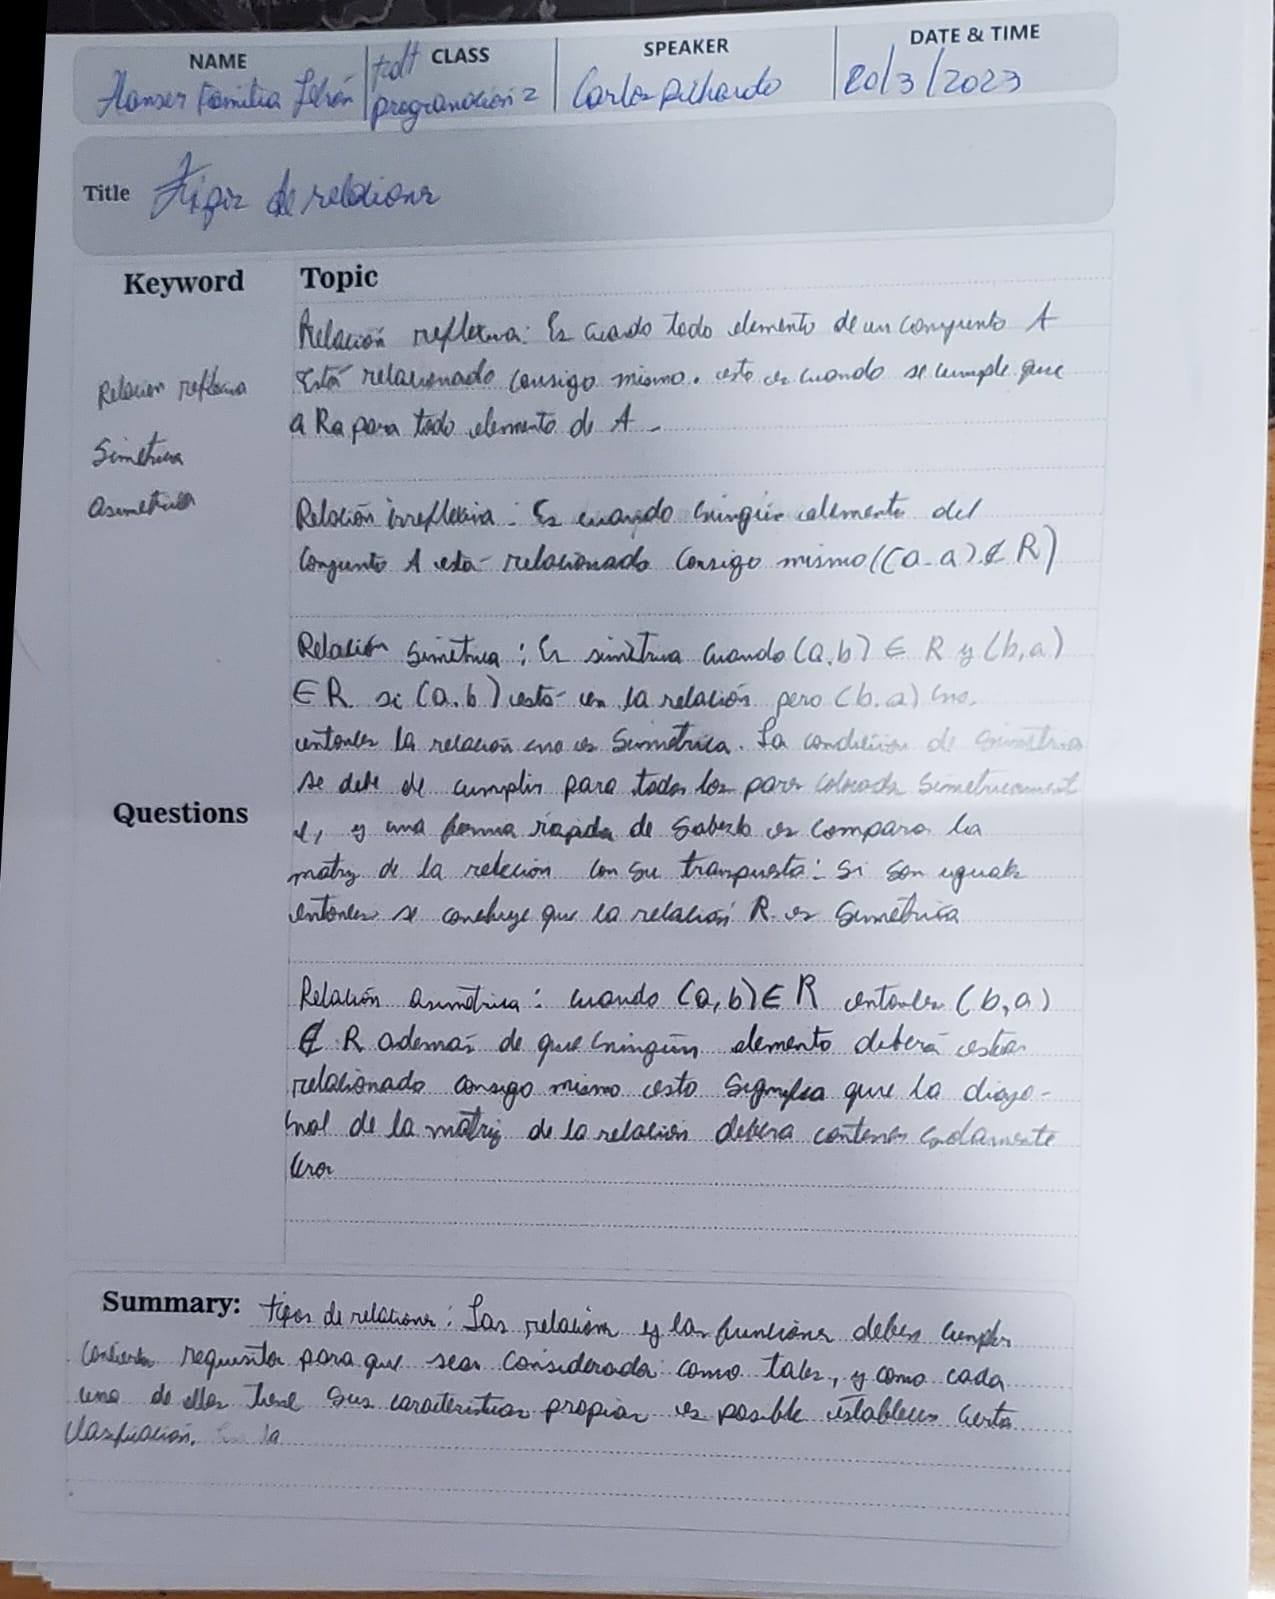 NAME CLASS SPEAKER DATE & TIME
Hanser Familia programación 2 Carlos Pichardo 20/3/2023
Title Tipos de relaciones
Keyword Topic
Relación reflexiva: Es cuando todo elemento de un conjunto A
Relacion reflexiva Está relacionado consigo mismo. esto es cuando se cumple que
a Ra para todo elemento de A.
Simetrica
asimetrica Relación irreflexiva: Es cuando ningún elemento del
conjunto A está relacionado consigo mismo ((a,a) ∉ R)
Relación simétrica: Es simétrica cuando (a,b) ∈ R y (b,a)
∈ R si (a,b) está en la relación pero (b,a) no.
entonces la relación no es simétrica. La condición de simetria
se debe de cumplir para todos los pares colocados simetricament
Questions
e, y una forma rápida de saberlo es comparar la
matriz de la relación con su transpuesta: si son iguales
entonces se concluye que la relación R es simétrica
Relación asimétrica: cuando (a,b) ∈ R entonces (b,a)
∉ R además de que ningún elemento deberá estar
relacionado consigo mismo esto significa que la diago-
nal de la matriz de la relación debera contener solamente
ceros
Summary: tipos de relaciones: Las relaciones y las funciones deben cumplir
requisitos para que sean consideradas como tales, y como cada
una de ellas tiene sus características propias es posible establecer cierta
clasificación. la